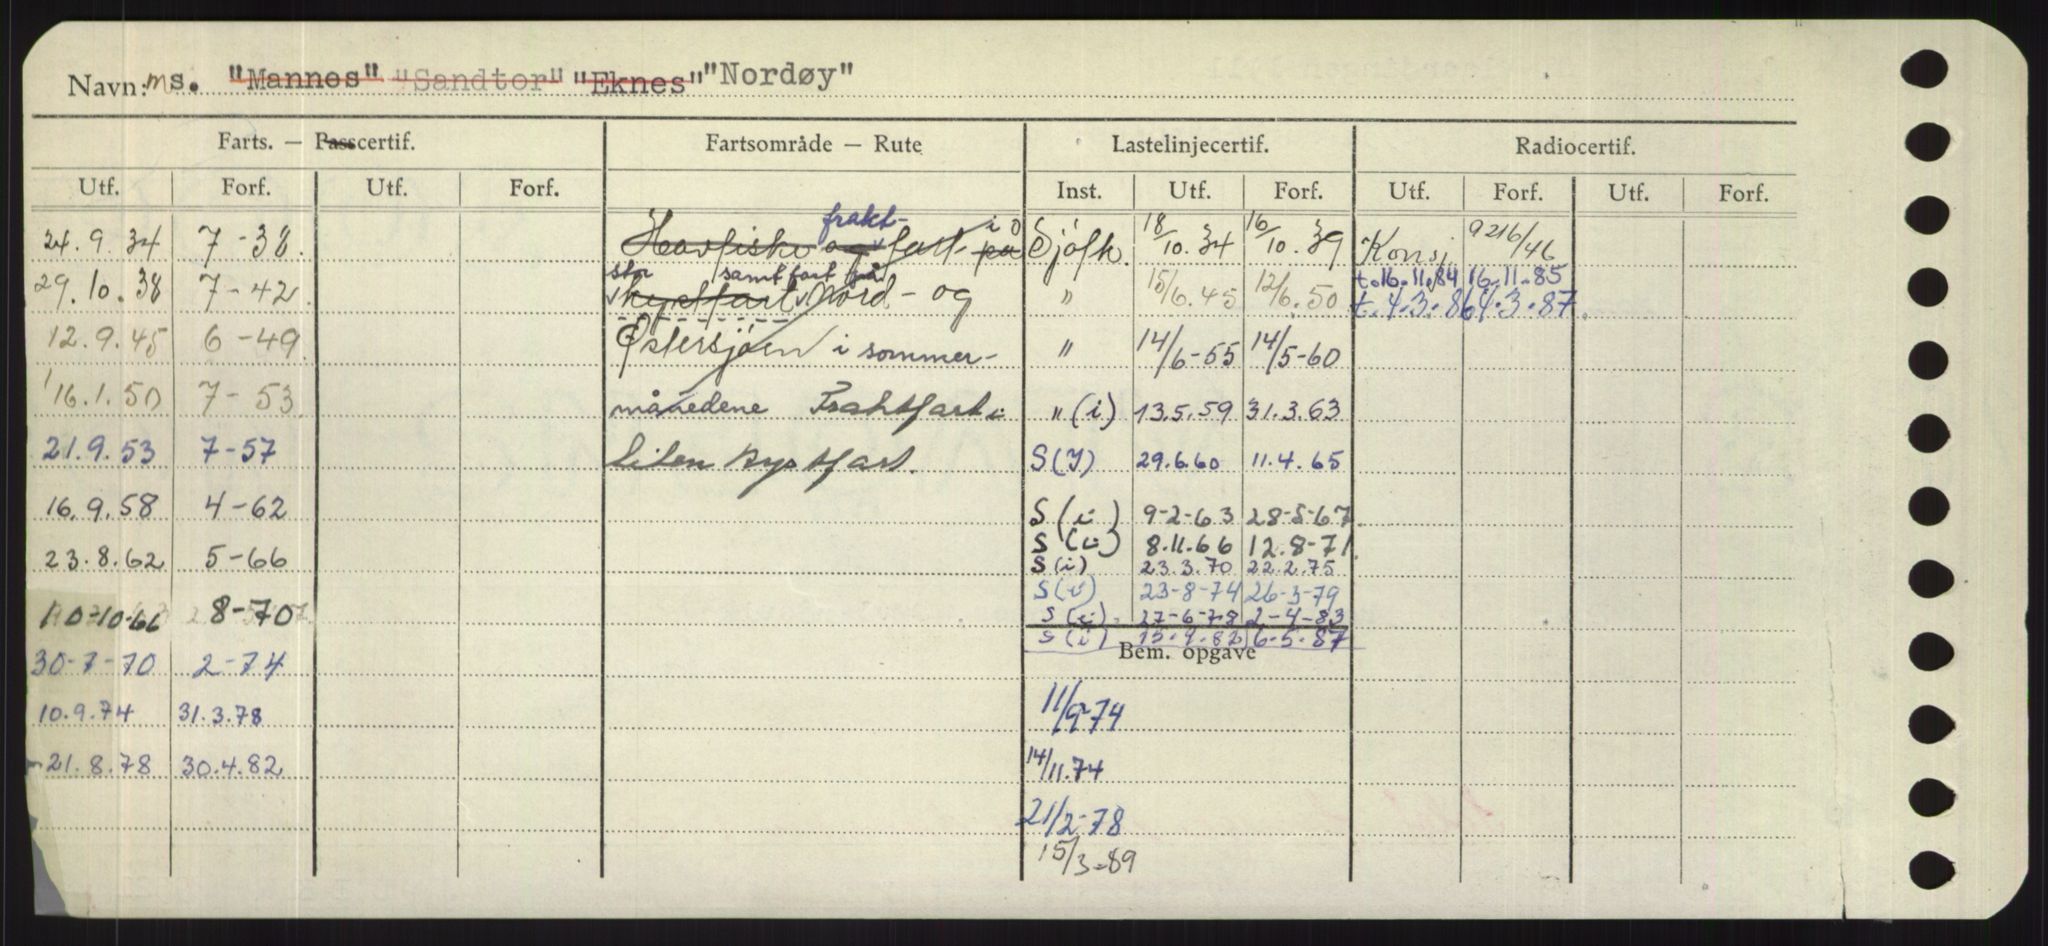 Navn: ms. "Mannes" "Sandtor" "Eknes" "Nordøy"
Farts. — Passcertif. Fartsområde — Rute Lastelinjecertif. Radiocertif.
Utf. Forf. Utf. Forf. Inst. Utf. Forf. Utf. Forf. Utf. Forf.
frakt-
24.9.34 7-38. Havfiske og fart på i Sjøfk. 18/10.34 16/10.39 Konsj. 9216/46
stor samt fart på t.16.11.84 16.11.85
29.10.38 7-42 kystfart Nord- og " 15/6.45 12/6.50 t.4.3.86 4.3.87
12.9.45 6-49 Østersjøen i sommer- " 14/6-55 14/5-60
16.1.50 7-53 månedene Fraktfart i " (i) 13.5.59 31.3.63
21.9.53 7-57 liten kystfart. S(Y) 29.6.60 11.4.65
16.9.58 4-62 S(i) 9-2-63 28-5-67
23.8.62 5-66 S(i) 8.11.66 12.8-71
S(i) 23.3.70 22.2.75
S(i) 23-8-74 26-3-79
10-10-66 8-70 S(i). 27-6-78 2-4-83
S(i) 15.9.82 6-5-87
30-7-70 2-74 Bem. opgave
10.9.74 31.3.78 11/9-74
21.8.78 30.4.82 14/11.74
21/2-78
15/3-89